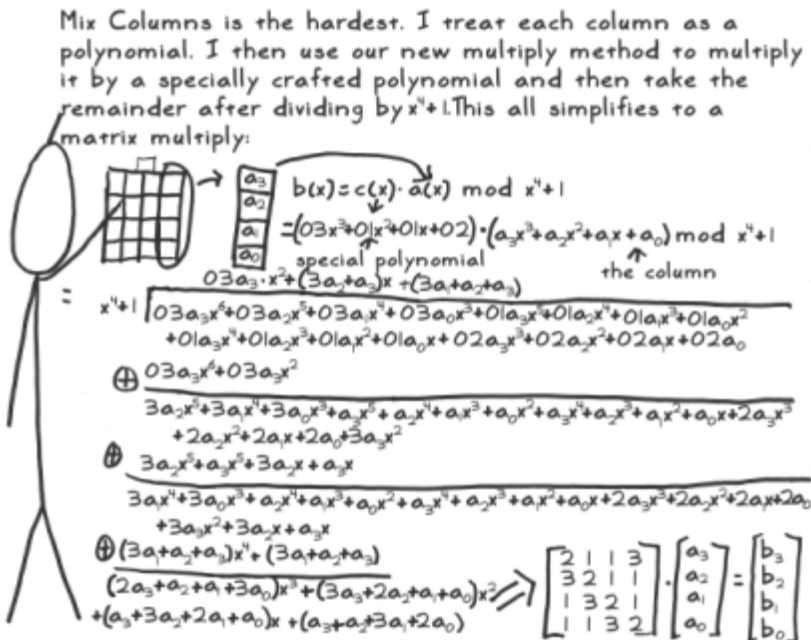 Mix Columns is the hardest. I treat each column as a
polynomial. I then use our new multiply method to multiply
it by a specially crafted polynomial and then take the
remainder after dividing by x⁴+1. This all simplifies to a
matrix multiply:
a₃
a₂
a₁
a₀
b(x)=c(x)·a(x) mod x⁴+1
=(03x³+01x²+01x+02)·(a₃x³+a₂x²+a₁x+a₀) mod x⁴+1
special polynomial
the column
=
03a₃·x²+(3a₂+a₃)x +(3a₁+a₂+a₃)
x⁴+1 03a₃x⁶+03a₂x⁵+03a₁x⁴+03a₀x³+01a₃x⁵+01a₂x⁴+01a₁x³+01a₀x²
+01a₃x⁴+01a₂x³+01a₁x²+01a₀x+02a₃x³+02a₂x²+02a₁x+02a₀
⊕ 03a₃x⁶+03a₃x²
3a₂x⁵+3a₁x⁴+3a₀x³+a₃x⁵+a₂x⁴+a₁x³+a₀x²+a₃x⁴+a₂x³+a₁x²+a₀x+2a₃x³
+2a₂x²+2a₁x+2a₀+3a₃x²
⊕ 3a₂x⁵+a₃x⁵+3a₂x+a₃x
3a₁x⁴+3a₀x³+a₂x⁴+a₁x³+a₀x²+a₃x⁴+a₂x³+a₁x²+a₀x+2a₃x³+2a₂x²+2a₁x+2a₀
+3a₃x²+3a₂x+a₃x
⊕ (3a₁+a₂+a₃)x⁴+(3a₁+a₂+a₃)
(2a₃+a₂+a₁+3a₀)x³+(3a₃+2a₂+a₁+a₀)x²
+(a₃+3a₂+2a₁+a₀)x +(a₃+a₂+3a₁+2a₀)
2 1 1 3 · a₃ = b₃
3 2 1 1 a₂ b₂
1 3 2 1 a₁ b₁
1 1 3 2 a₀ b₀